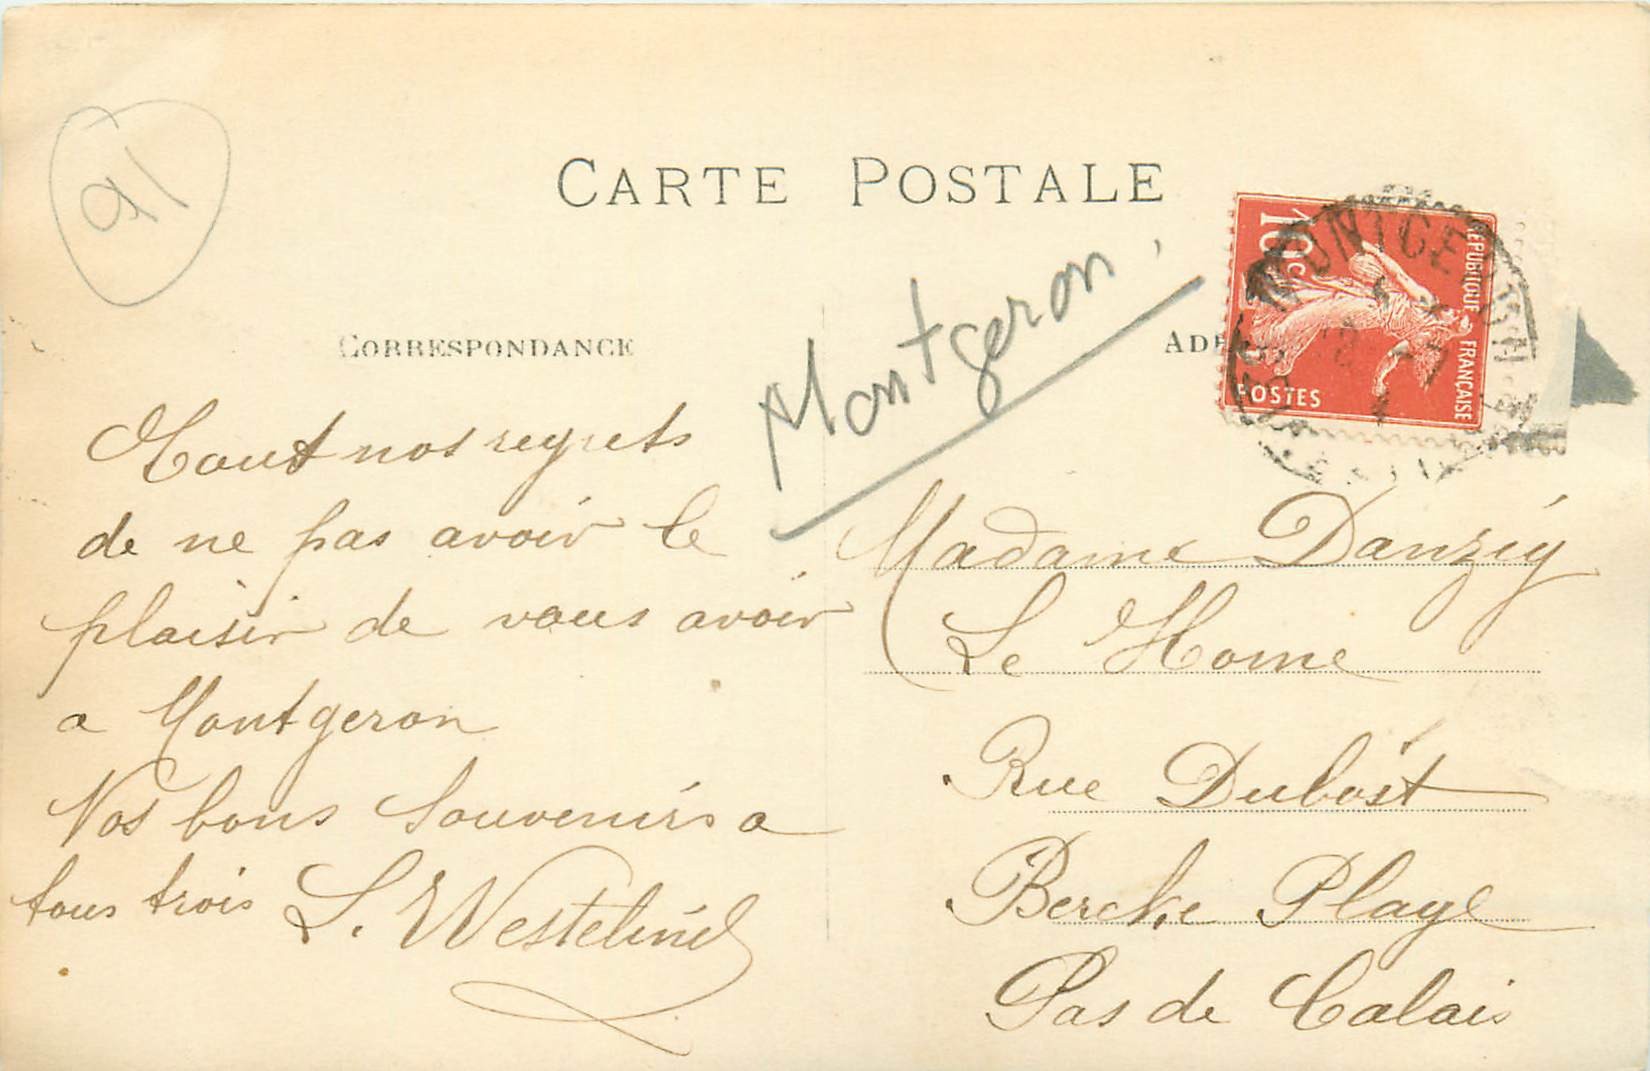 91
CARTE POSTALE
Montgeron.
CORRESPONDANCE
10c
RÉPUBLIQUE FRANÇAISE
POSTES
MONTGERON
Tout nos regrets
de ne pas avoir le
plaisir de vous avoir
a Montgeron
Nos bons souvenirs a
tous trois
Madame Danzig
Le Home
Rue Dubost
Bercke Plage
Pas de Calais